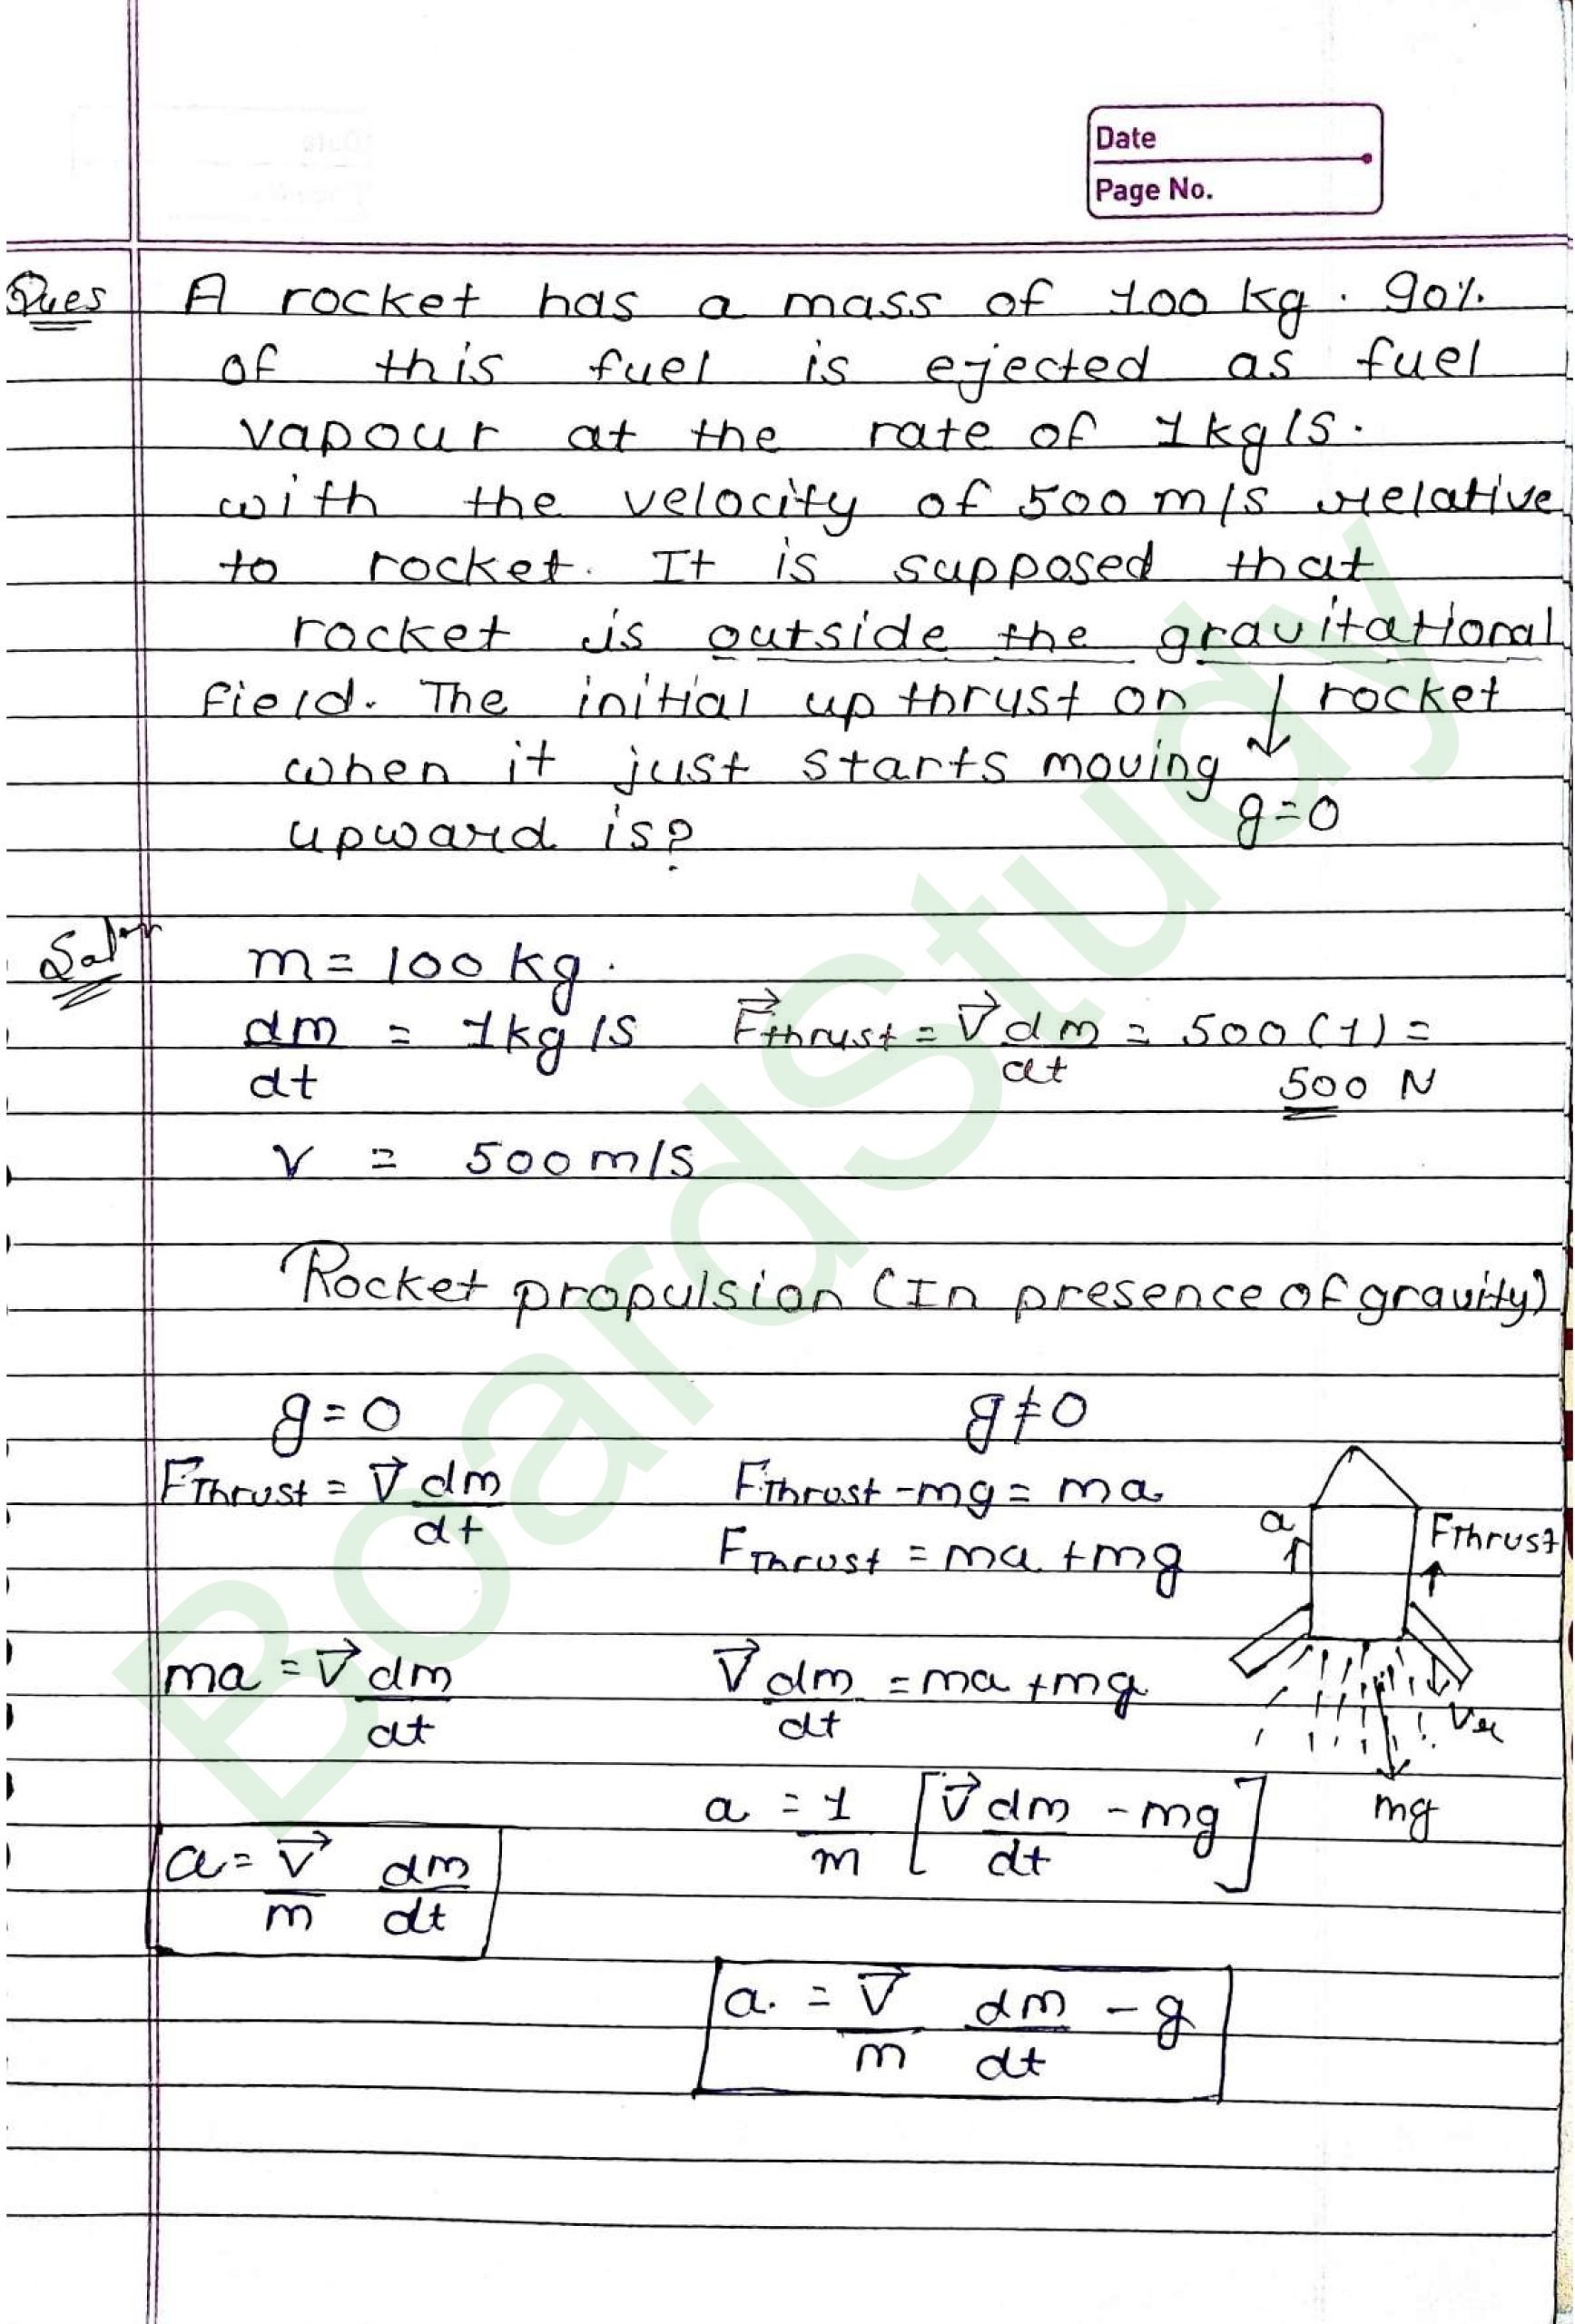 Date
Page No.
Ques A rocket has a mass of 100 kg. 90%
of this fuel is ejected as fuel
vapour at the rate of 1kg/s.
with the velocity of 500 m/s relative
to rocket. It is supposed that
rocket is outside the gravitational
field. The initial up thrust on ↓ rocket
when it just starts moving
g=0
upward is?
Sol^n m = 100 kg.
dm/dt = 1kg/s F⃗thrust = V⃗ dm/dt = 500 (1) =
500 N
V = 500 m/s
Rocket propulsion (In presence of gravity)
g=0 g≠0
FThrust = V⃗ dm/dt FThrust - mg = ma
a FThrust
FThrust = ma + mg
ma = V⃗ dm/dt V⃗ dm/dt = ma + mg
Vr
a = 1/m [V⃗ dm/dt - mg] mg
a = V⃗/m dm/dt
a. = V⃗/m dm/dt - g
BoardStudy